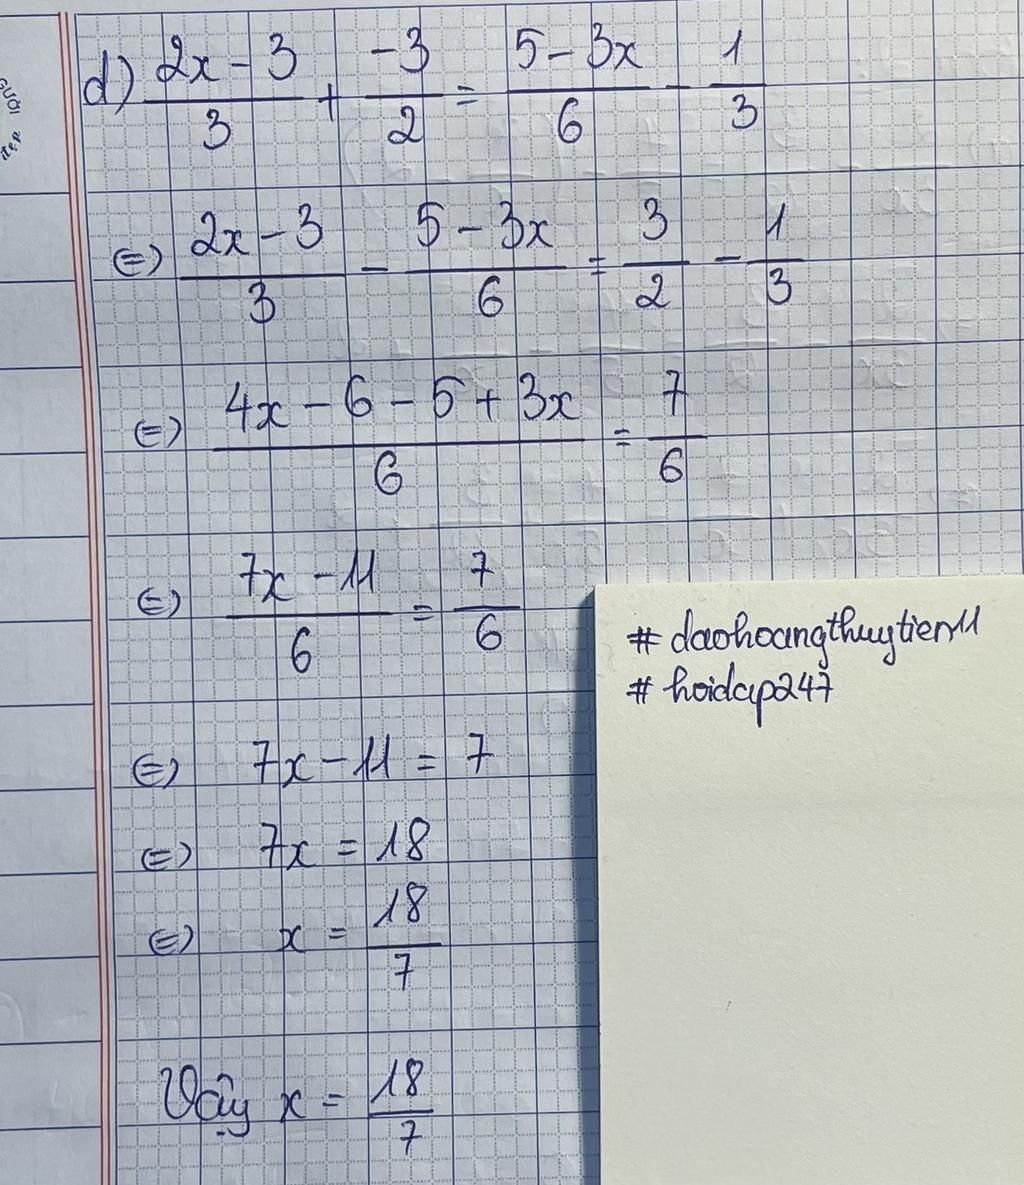 d) (2x - 3)/3 + (-3)/2 = (5 - 3x)/6 - 1/3
⇔ (2x - 3)/3 - (5 - 3x)/6 = 3/2 - 1/3
⇔ (4x - 6 - 5 + 3x)/6 = 7/6
⇔ (7x - 11)/6 = 7/6
⇔ 7x - 11 = 7
⇔ 7x = 18
⇔ x = 18/7
Vậy x = 18/7
# daohoangthuytien11
# hoidap247